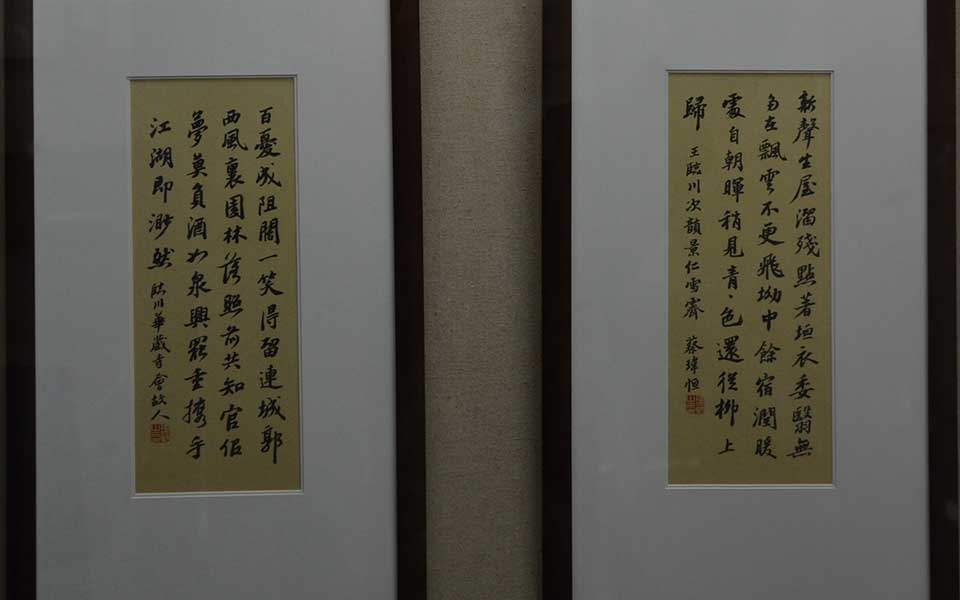 新聲生屋溜殘點著垣衣委翳無
多在飄零不更飛坳中餘宿潤暖
處自朝暉稍見青、色還從柳上
歸 王臨川次韻景仁雪霽 蔡瑋恒
百憂成阻闊一笑得留連城郭
西風裏園林落照前共知官侶
夢莫負酒如泉興罷重攜手
江湖即渺然 臨川華藏寺會故人